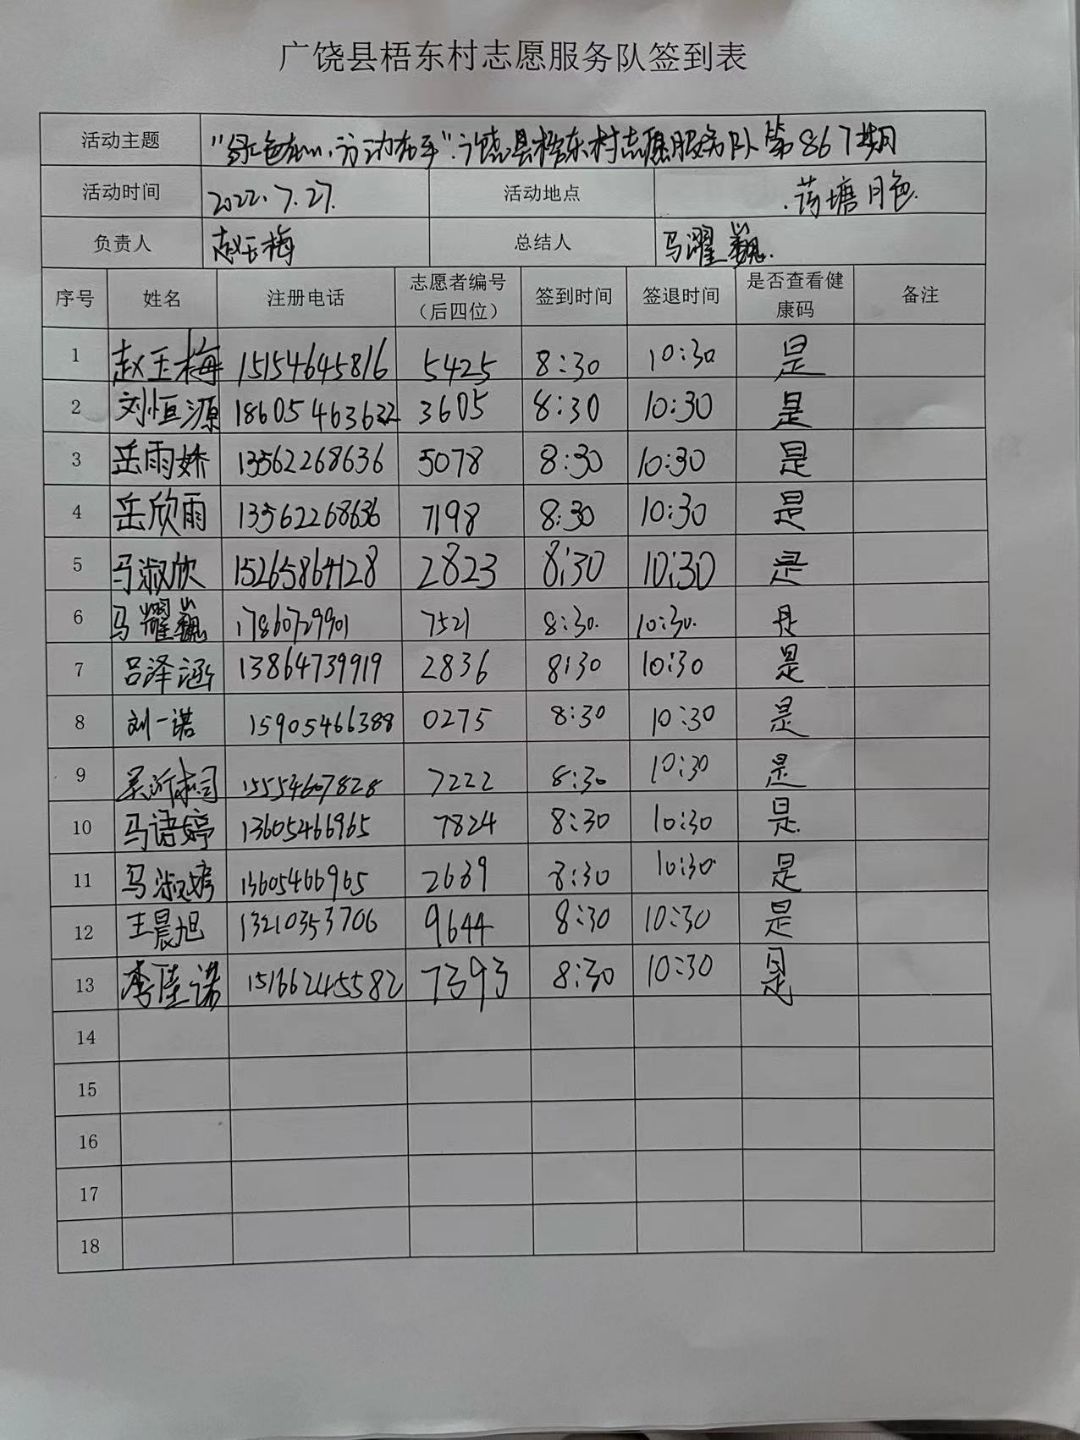 广饶县梧东村志愿服务队签到表
活动主题 "绿色在心,行动在手".广饶县梧东村志愿服务队第867期
活动时间 2022.7.27. 活动地点 .荷塘月色.
负责人 赵玉梅 总结人 马濯巍.
序号 姓名 注册电话 志愿者编号（后四位） 签到时间 签退时间 是否查看健康码 备注
1 赵玉梅 15154645816 5425 8:30 10:30 是
2 刘恒源 18605463622 3605 8:30 10:30 是
3 岳雨娇 13562268636 5078 8:30 10:30 是
4 岳欣雨 13562268636 7198 8:30 10:30 是
5 马淑欣 15265864128 2823 8:30 10:30 是
6 马耀巍 17860729901 7521 8:30. 10:30. 是
7 吕泽涵 13864739919 2836 8:30 10:30 是
8 刘一诺 15905466388 0275 8:30 10:30 是
9 15554607828 7222 8:30 10:30 是
10 马语婷 13605466965 7824 8:30 10:30 是
11 马淑婷 13605466965 2639 8:30 10:30 是
12 王晨旭 13210353706 9644 8:30 10:30 是
13 李佳诺 15166245582 7393 8:30 10:30 是
14
15
16
17
18